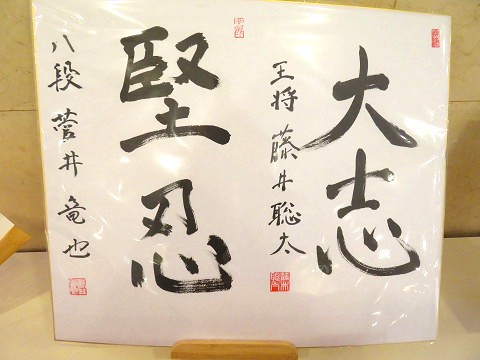 大志
王将 藤井聡太
堅忍
八段 菅井竜也